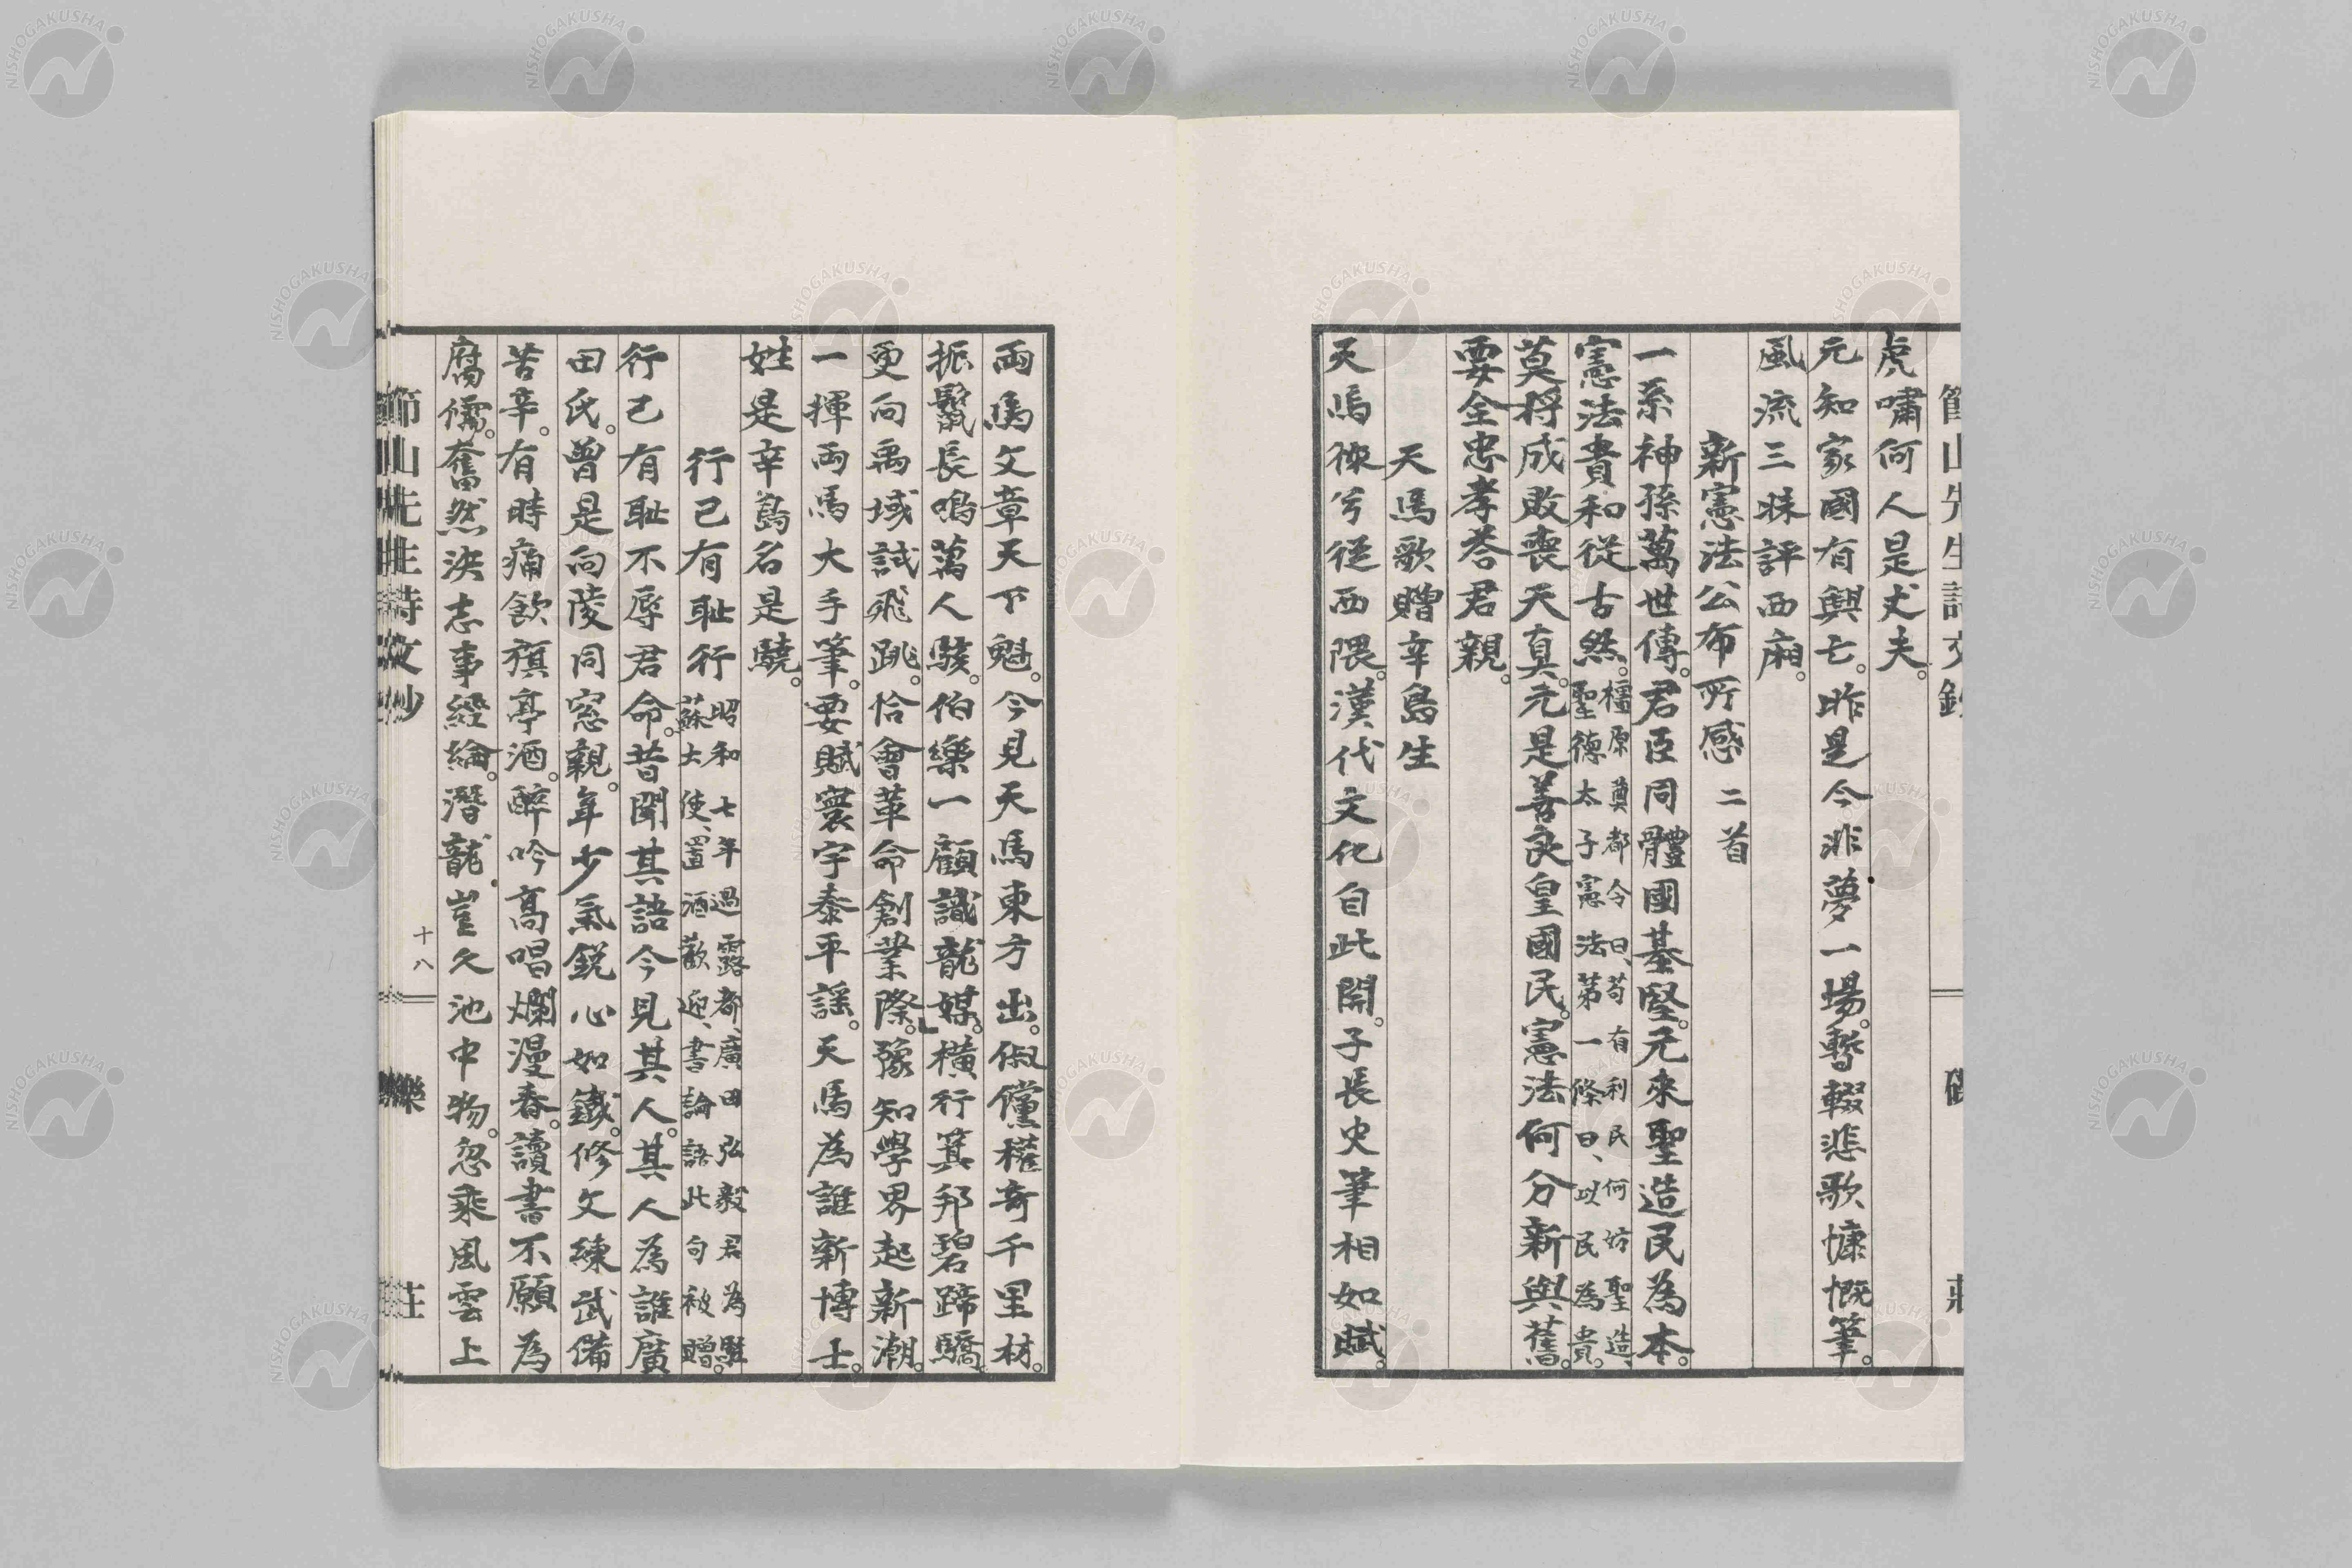 節山先生詩文鈔
虎嘯何人是丈夫。
元知家國有興亡。昨是今非夢一場。暫輟悲歌慷慨筆。
風流三昧評西廂。
新憲法公布所感 二首
一系神孫萬世傳。君臣同體國基堅。元來聖造民為本。
憲法貴和從古然。
橿原奠都令曰、苟有利民何妨聖造、
聖德太子憲法第一條曰、以民為貴。
莫將成敗喪天真。元是善良皇國民。憲法何分新與舊。
要全忠孝答君親。
天馬歌贈辛島生
天馬徠兮從西隈。漢代文化自此開。子長史筆相如賦。
兩馬文章天下魁。今見天馬東方出。俶儻權奇千里材。
振鬣長鳴萬人駭。伯樂一顧識龍媒。橫行箕邦碧蹄驕。
更向禹域試飛跳。恰會革命創業際。豫知學界起新潮。
一揮兩馬大手筆。要賦寰宇泰平謠。天馬為誰新博士。
姓是辛島名是驍。
行己有恥行
昭和七年過露都、廣田弘毅君為駐
蘇大使、置酒歡迎、書論語此句被贈。
行己有恥不辱君命。昔聞其語今見其人。其人為誰廣
田氏。曾是向陵同窓親。年少氣銳心如鐵。修文練武備
苦辛。有時痛飲旗亭酒。醉吟高唱爛漫春。讀書不願為
腐儒。奮然決志事經綸。潛龍豈久池中物。忽乘風雲上
節山先生詩文鈔
十八
樂
莊
NISHOGAKUSHA